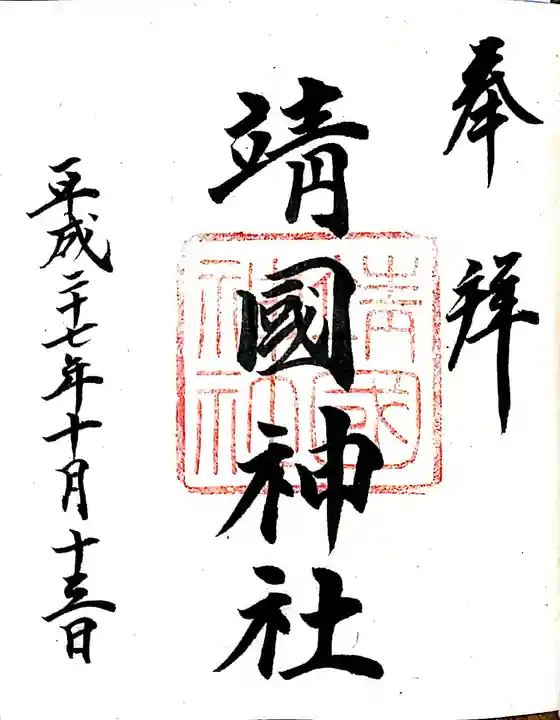 奉拝
靖國神社
平成二十七年十月十三日
靖國
神社